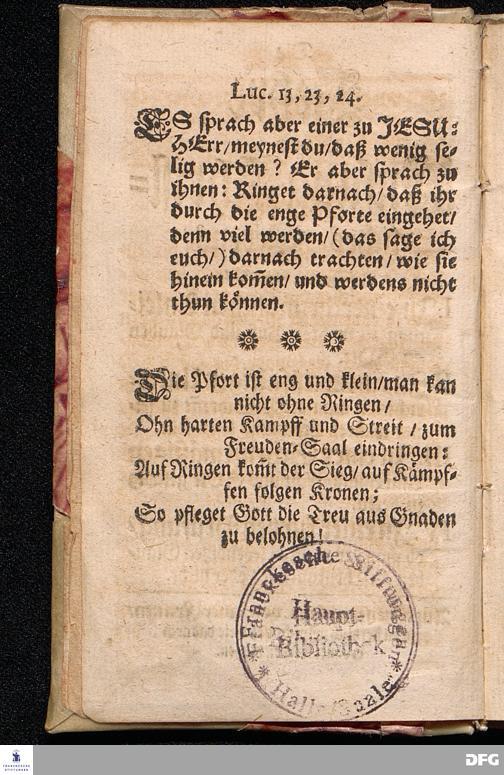 Luc. 13, 23, 24.
ES sprach aber einer zu JESU:
HErr/meynest du/daß wenig se-
lig werden? Er aber sprach zu
ihnen: Ringet darnach/ daß ihr
durch die enge Pforte eingehet/
denn viel werden/(das sage ich
euch/) darnach trachten/ wie sie
hinein kom̃en/ und werdens nicht
thun können.
Die Pfort ist eng und klein/man kan
nicht ohne Ringen/
Ohn harten Kampff und Streit / zum
Freuden-Saal eindringen:
Auf Ringen kom̃t der Sieg/auf Kämpf-
fen folgen Kronen;
So pfleget Gott die Treu aus Gnaden
zu belohnen!
Franckesche Stiftungen
Haupt-
Bibliothek
Halle/Saale
FRANCKESCHE STIFTUNGEN
DFG